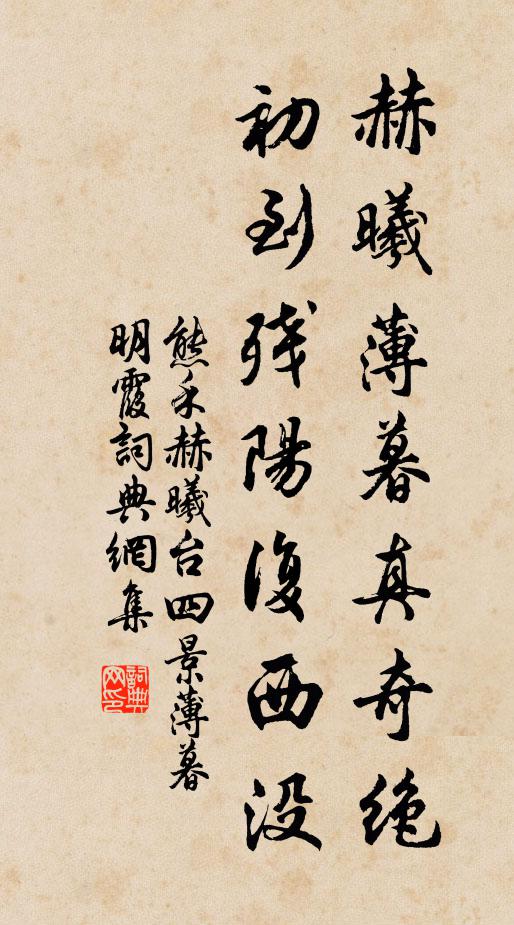 赫曦薄暮真奇绝
初到残陽復西没
熊禾赫曦台四景薄暮
明霞詞典網集
詞典網印